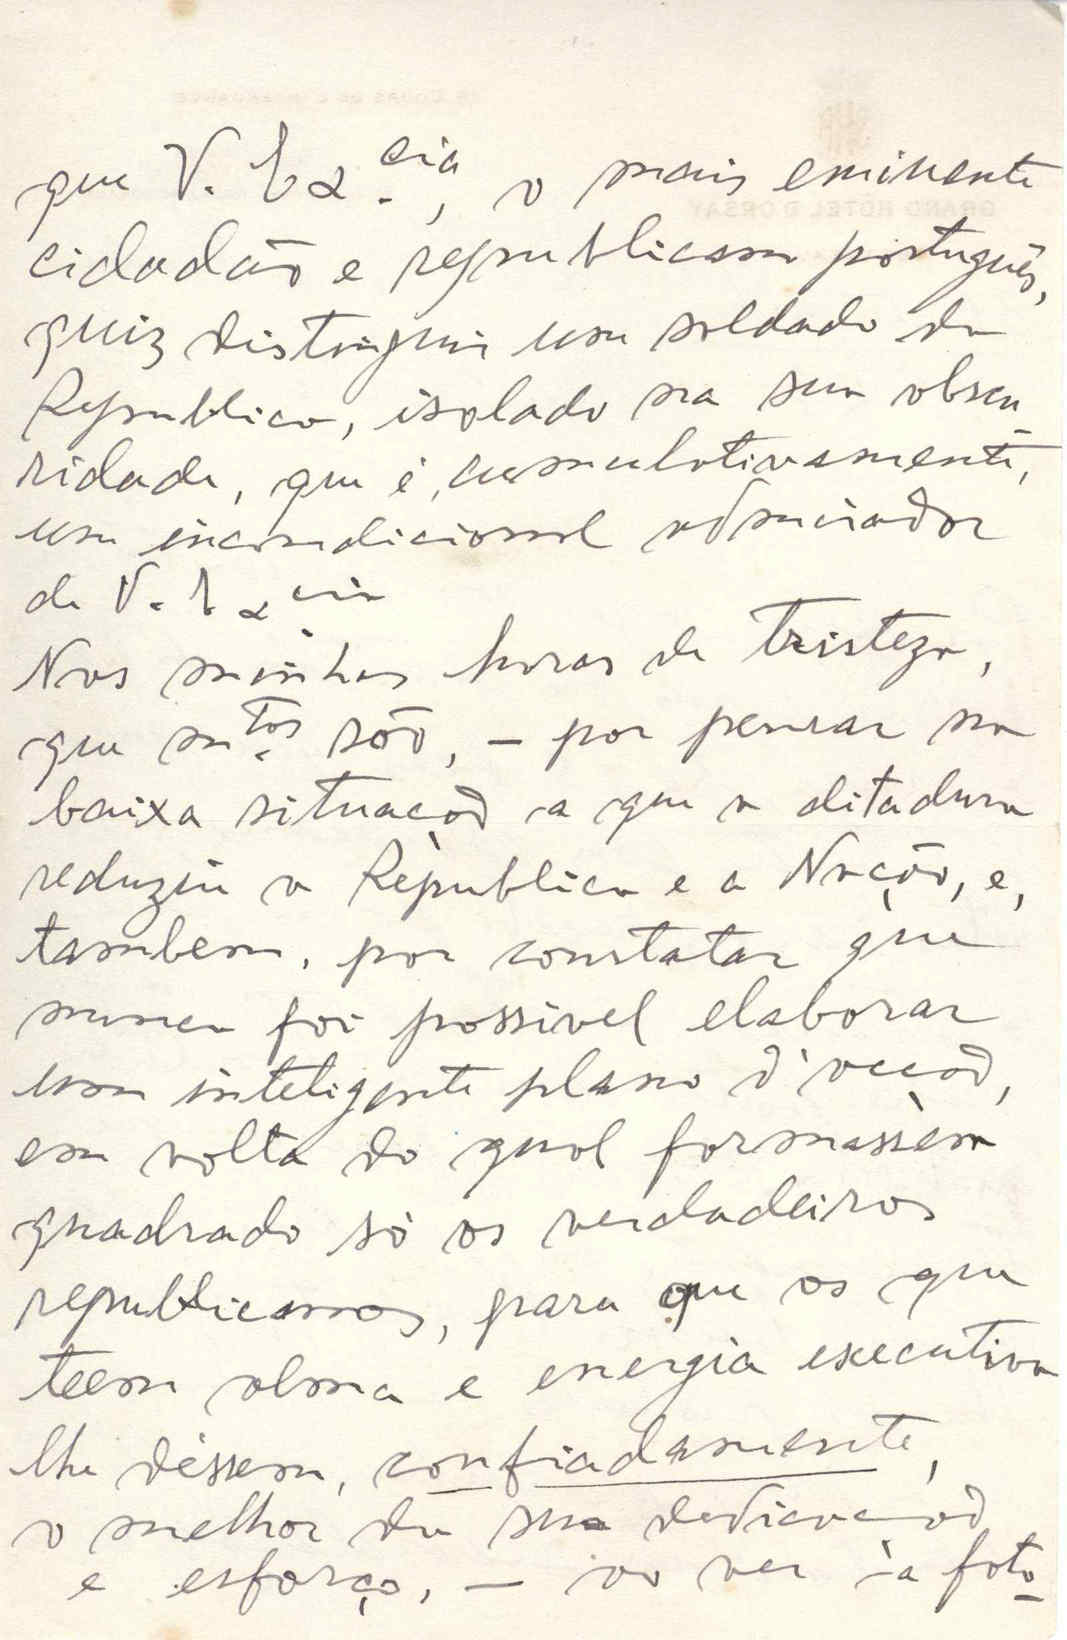 que V. Ex.cia, o mais eminente
cidadão e republicano português,
quiz distinguir um soldado da
Republica, isolado na sua obscu-
ridade, que é, cumulativamente,
um incondicional admirador
de V. Ex.cia
Nas minhas horas de tristeza,
que m.tas são, — por pensar na
baixa situação a que a ditadura
reduziu a Republica e a Nação, e,
tambem, por constatar que
nunca foi possivel elaborar
um inteligente plano d'acção,
em volta do qual formassem
quadrado só os verdadeiros
republicanos, para que os que
teem alma e energia executiva
lhe déssem, confiadamente,
o melhor da sua dedicação
e esforço, — ao ver a foto-
GRAND HÔTEL D'ORSAY